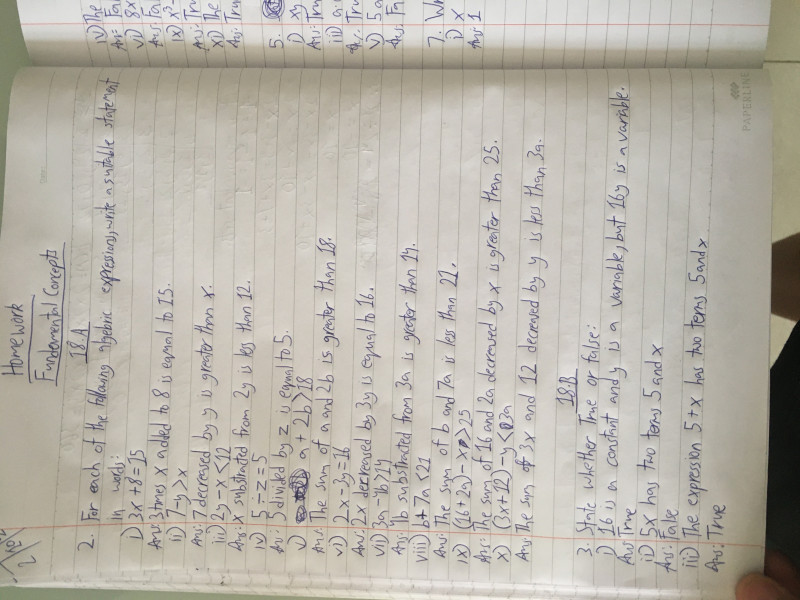 Homework
Fundamental Concepts
18.A
2. For each of the following algebric expressions, write a suitable statement
in words:
i) 3x + 8 = 15
Ans: 3 times x added to 8 is equal to 15.
ii) 7-y > x
Ans: 7 decreased by y is greater than x.
iii) 2y - x < 12
Ans: x substracted from 2y is less than 12.
iv) 5 ÷ z = 5
Ans: 5 divided by z is equal to 5.
v) a + 2b > 18
Ans: The sum of a and 2b is greater than 18.
vi) 2x - 3y = 16
Ans: 2x decreased by 3y is equal to 16.
vii) 3a - 4b > 14
Ans: 4b substracted from 3a is greater than 14.
viii) b + 7a < 21
Ans: The sum of b and 7a is less than 21.
ix) (16 + 2a) - x > 25
Ans: The sum of 16 and 2a decreased by x is greater than 25.
x) (3x + 12) - y < 3a
Ans: The sum of 3x and 12 decreased by y is less than 3a.
18.B
3. State whether True or false:
i) 16 is a constant and y is a variable, but 16y is a variable.
Ans: True
ii) 5x has two terms 5 and x
Ans: False
iii) The expression 5 + x has two terms 5 and x
Ans: True
PAPERLINE
iv) The
Ans: Fal
v) 8x
ix) x3
Ans: Tru
xi) The
Ans: Tru
5.
i) xy
Ans: Tru
iii) a
v) 5a
7. Wh
i) x
Ans: 1